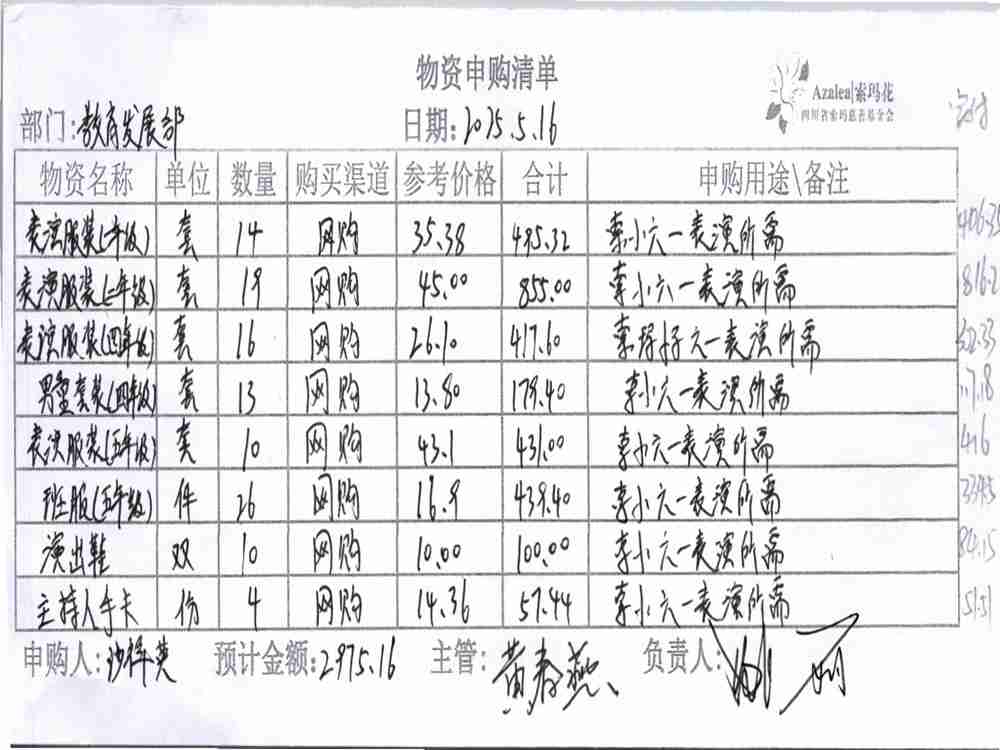 物资申购清单
Azalea|索玛花
四川省索玛慈善基金会
部门:教育发展部 日期:2025.5.16 实付
物资名称 单位 数量 购买渠道 参考价格 合计 申购用途\备注
表演服装(一年级) 套 14 网购 35.38 495.32 索小六一表演所需 406.35
表演服装(二年级) 套 19 网购 45.00 855.00 索小六一表演所需 816.2
表演服装(四年级) 套 16 网购 26.10 417.60 六一表演所需
男童套装(四年级) 套 13 网购 13.80 179.40 索小六一表演所需
表演服装(五年级) 套 10 网购 43.1 431.00 索小六一表演所需 416
班服(五年级) 件 26 网购 16.9 439.40 索小六一表演所需
演出鞋 双 10 网购 10.00 100.00 索小六一表演所需 84.15
主持人手卡 份 4 网购 14.36 57.44 索小六一表演所需 51.51
申购人: 预计金额:2975.16 主管:黄春燕 负责人: